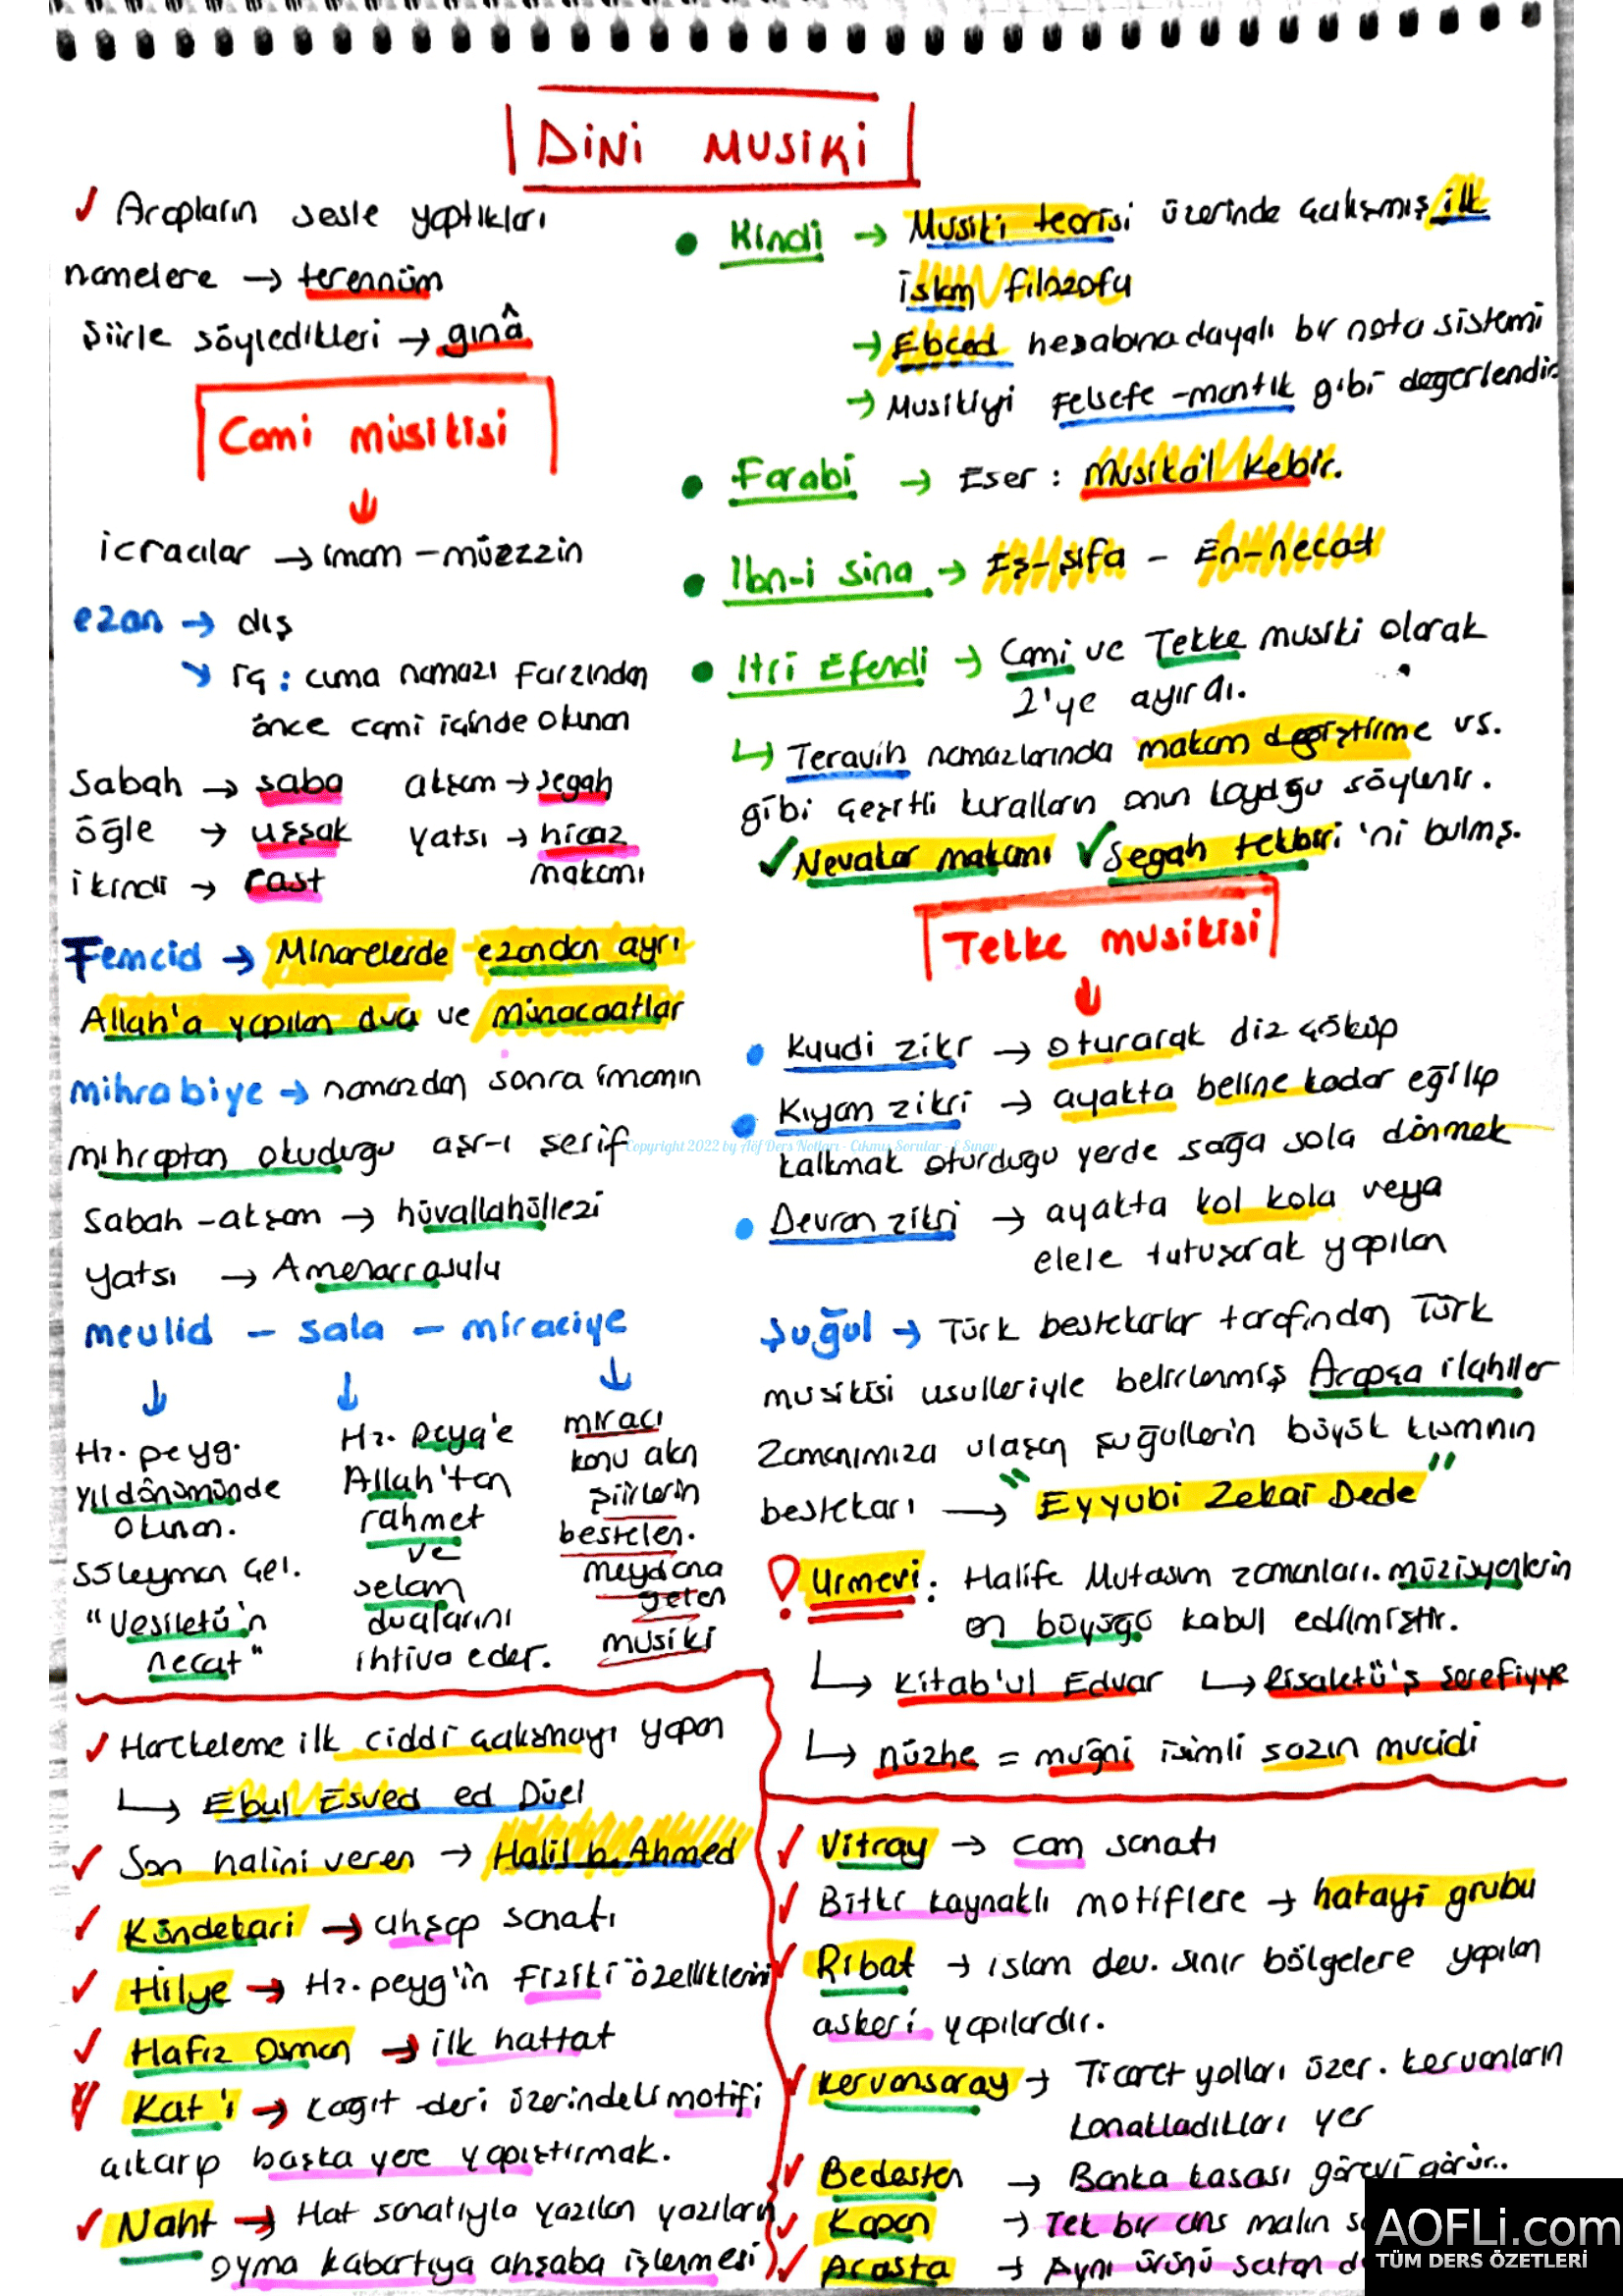 DiNi MUSiKi
✓ Arapların sesle yaptıkları
namelere → terennüm
Şiirle söyledikleri → gınâ
Cami müsikisi
↓
icracılar → imam – müezzin
ezan → dış
↘ iç : cuma namazı Farzından
önce cami içinde okunan
Sabah → saba akşam → segah
öğle → uşşak yatsı → hicaz
ikindi → rast makamı
Temcid → Minarelerde ezandan ayrı
Allah'a yapılan dua ve münacaatlar
mihrabiye → namazdan sonra imamın
mihraptan okuduğu aşr-ı şerif
Sabah – akşam → hüvallahüllezi
yatsı → Amenarrasulu
mevlid – sala – miraciye
↓ ↓ ↓
Hz. peyg.
yıldönümünde
okunan.
Süleyman Çel.
"Vesiletü'n
necat"
Hz. peyg'e
Allah'tan
rahmet
ve
selam
dualarını
ihtiva eder.
miracı
konu alan
şiirlerin
bestelen.
meydana
gelen
musiki
✓ Harekeleme ilk ciddi çalışmayı yapan
↳ Ebul Esved ed Düel
✓ Son halini veren → Halil b. Ahmed
✓ Kündekari → ahşap sanatı
✓ Hilye → Hz. peyg'in Fiziki özelliklerini
✓ Hafız Osman → ilk hattat
✓ Kat'ı → kağıt deri üzerindeki motifi
çıkarıp başka yere yapıştırmak.
✓ Naht → Hat sanatıyla yazılan yazıların
oyma kabartıya ahşaba işlenmesi
• Kindi → Musiki teorisi üzerinde çalışmış ilk
islam filozofu
→ Ebced hesabına dayalı bir nota sistemi
→ Musikiyi Felsefe – mantık gibi değerlendir
• Farabi → Eser : Musika'l Kebir.
• Ibn-i Sina → Eş-şifa – En-necat
• Itri Efendi → Cami ve Tekke musiki olarak
2'ye ayırdı.
↳ Teravih namazlarında makam değiştirme vs.
gibi çeşitli kuralların onun koyduğu söylenir.
✓ Nevakar makamı ✓ Segah tekbiri 'ni bulmş.
Tekke musikisi
↓
• Kuudi zikr → oturarak diz çöküp
• Kıyam zikri → ayakta beline kadar eğilip
kalkmak oturduğu yerde sağa sola dönmek
• Devran zikri → ayakta kol kola veya
elele tutuşarak yapılan
Şuğul → Türk bestekarlar tarafından Türk
musikisi usulleriyle belirlenmiş Arapça ilahiler
Zamanımıza ulaşan şuğullerin büyük kısmının
bestekarı → "Eyyubi Zekai Dede"
! Urmevi : Halife Mutasım zamanları. müzisyenlerin
en büyüğü kabul edilmiştir.
↳ Kitab'ul Edvar ↳ Risaletü'ş şerefiyye
↳ nüzhe = muğni isimli sazın mucidi
✓ Vitray → cam sanatı
✓ Bitki kaynaklı motiflere → hatayi grubu
✓ Ribat → islam dev. sınır bölgelere yapılan
askeri yapılardır.
✓ Kervansaray → Ticaret yolları üzer. kervanların
konakladıkları yer
✓ Bedesten → Banka kasası görevi görür..
✓ Kapan → Tek bir cins malın s
✓ Arasta → Aynı ürünü satan d
Copyright 2022 by Aöf Ders Notları - Çıkmış Sorular - E Sınav
AOFLi.com
TÜM DERS ÖZETLERİ